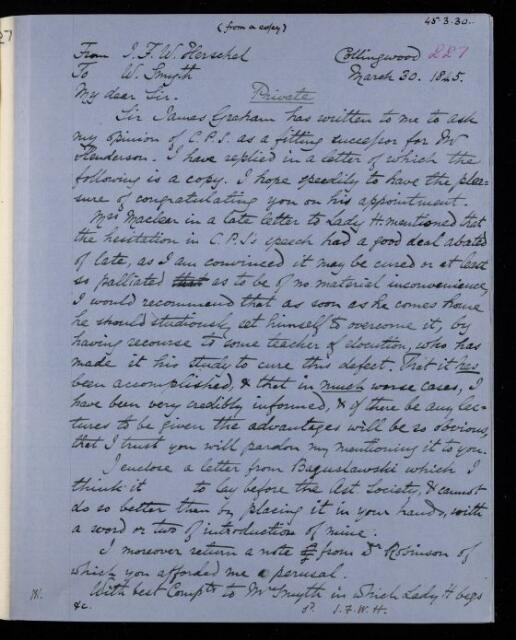 (from a copy)
45.3.30.
27
From J.F.W. Herschel Collingwood 227
To W. Smyth March 30. 1845.
My dear Sir. Private
Sir James Graham has written to me to ask
my opinion of C.P.S. as a fitting successor for Mr
Henderson. I have replied in a letter of which the
following is a copy. I hope speedily to have the plea-
sure of congratulating you on his appointment.
Mrs Maclear in a late letter to Lady H. mentioned that
the hesitation in C.P.S's speech had a good deal abated
of late, as I am convinced it may be cured or at least
so palliated that as to be of no material inconvenience,
I would recommend that as soon as he comes home
he should studiously set himself to overcome it, by
having recourse to some teacher of elocution, who has
made it his study to cure this defect. That it has
been accomplished, & that in much worse cases, I
have been very credibly informed, & if there be any lec-
tures to be given the advantages will be so obvious,
that I trust you will pardon my mentioning it to you.
I enclose a letter from Boguslawski which I
think it to lay before the Ast. Society, & cannot
do so better than by placing it in your hands, with
a word or two of introduction of mine.
I moreover return a note from Dr Robinson of
which you afforded me a perusal.
With best Compts to Mrs Smyth in which Lady H begs
&c. J.F.W.H.